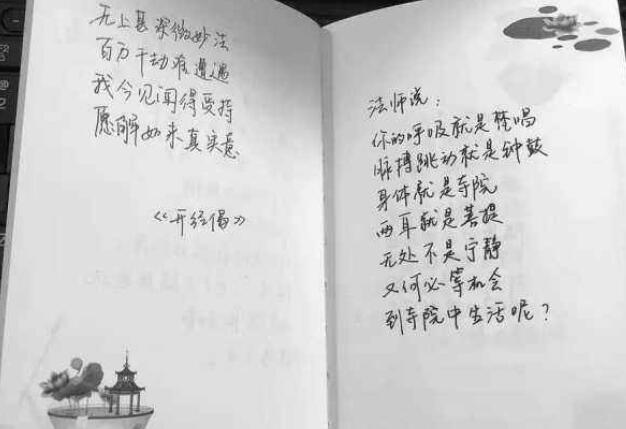 无上甚深微妙法
百万千劫难遭遇
我今见闻得受持
愿解如来真实意
《开经偈》
法师说：
你的呼吸就是梵唱
脉搏跳动就是钟鼓
身体就是寺院
两耳就是菩提
无处不是宁静
又何必等机会
到寺院中生活呢？